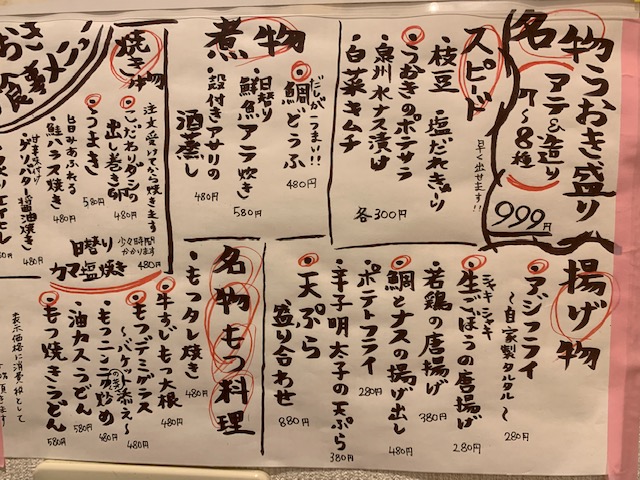 名物うおき盛り
アテ&造り
7〜8種
999円
スピード
早く出せます!!
枝豆
・塩だれきゅうり
・うおきのポテサラ
・泉州水ナス漬け
・白菜キムチ
各300円
煮物
だしがつまい!!
・鯛どうふ
480円
・日替り
鮮魚アラ炊き
580円
・殻付きアサリの
酒蒸し
480円
焼き物
注文受けてから焼きます
・こだわりダシの
出し巻き卵
480円
・うまき
580円
旨みあふれる
・鮭ハラス焼き
480円
甘辛味付け
・ゲソバター醤油焼き
480円
日替り
カマ塩焼き
少々時間
かかります
480円
おき
食事メニュー
揚げ物
・アジフライ
〜自家製タルタル〜
280円
シャキシャキ
・生ごぼうの唐揚げ
280円
・若鶏の唐揚げ
380円
・鯛とナスの揚げ出し
480円
・ポテトフライ
280円
・辛子明太子の天ぷら
380円
・天ぷら
盛り合わせ
880円
名物もつ料理
・もつタレ焼き
480円
・牛すじもつ大根
480円
・もつデミグラス
〜バケット添え〜
480円
・もつニンニクの芽炒め
480円
・油カスうどん
580円
・もつ焼きうどん
580円
表示価格に消費税として